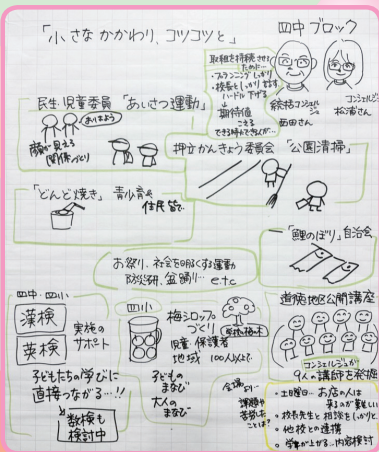 「小さなかかわり、コツコツと」
四中ブロック
取組を持続させる
ために…
・プランニングしっかり
・校長としっかり話す
ハードル下げる
↓
期待値
こえる
統括コンシェルジュ
西田さん
コンシェルジュ
松浦さん
民生・児童委員「あいさつ運動」
おはよう
顔が見える
関係づくり
押立かんきょう委員会「公園清掃」
「どんど焼き」青少育や
住民皆で
「鯉のぼり」自治会
お祭り、社会を明るくする運動
防災研、盆踊り… etc
四中・四小
漢検
英検
実施の
サポート
子どもたちの学びに
直接つながる…!!
数検も
検討中
四小
梅シロップ
づくり
学校の梅の木
児童 保護者
地域 100人以上で…
子どもの
まなび
大人の
まなび
会場より…
課題や
苦労した
ことは?
道徳地区公開講座
コンシェルジュが
9人の講師を発掘
・土日曜日… お店の人は
来るのが難しい
・校長先生と相談をしっかりと。
・他校との連携
・学年が上がる…内容検討